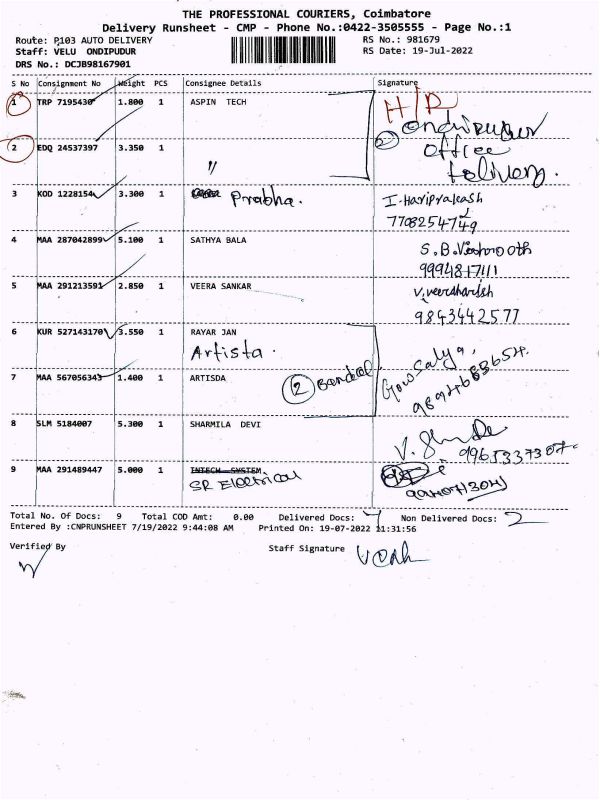 THE PROFESSIONAL COURIERS, Coimbatore
Delivery Runsheet - CMP - Phone No.:0422-3505555 - Page No.:1
Route: P103 AUTO DELIVERY
RS No.: 981679
Staff: VELU ONDIPUDUR
RS Date: 19-Jul-2022
DRS No.: DCJB98167901
S No Consignment No Weight PCS Consignee Details Signature
1 TRP 7195430 1.800 1 ASPIN TECH H/R
2 EDQ 24537397 3.350 1 "
② office
3 KOD 1228154 3.300 1 Prabha.
I. Hariprakash
4 MAA 287042899 5.100 1 SATHYA BALA
S.B.
9994817111
5 MAA 291213591 2.850 1 VEERA SANKAR
9843442577
6 KUR 527143170 3.550 1 RAYAR JAN
Artista.
7 MAA 567056343 1.400 1 ARTISDA
②
Gowsalya
8 SLM 5184007 5.300 1 SHARMILA DEVI
9965337307
9 MAA 291489447 5.000 1 INTECH SYSTEM
SR Electrical
Total No. Of Docs: 9 Total COD Amt: 0.00 Delivered Docs: 7 Non Delivered Docs: 2
Entered By :CNPRUNSHEET 7/19/2022 9:44:08 AM Printed On: 19-07-2022 11:31:56
Verified By
Staff Signature